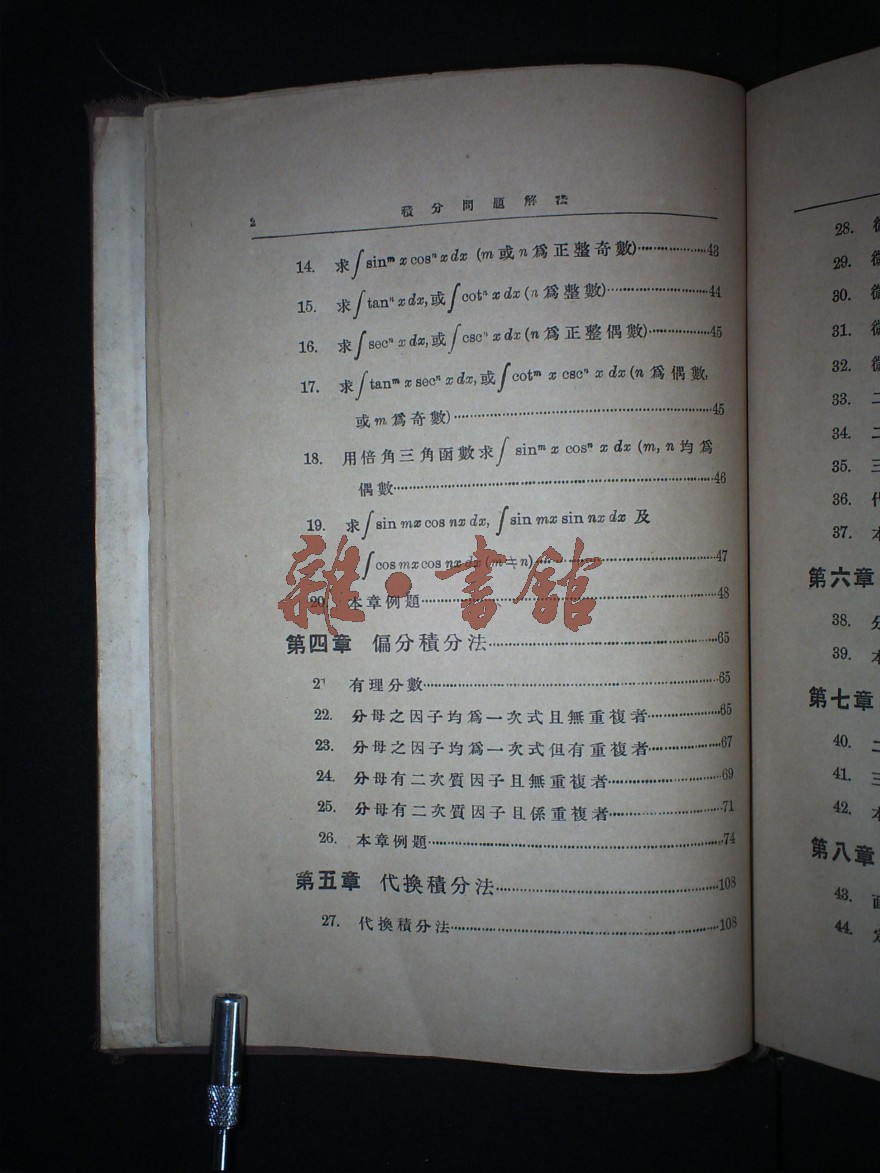 2 積分問題解法
14. 求∫sinᵐ x cosⁿ x dx (m 或 n 爲正整奇數)··················43
15. 求∫tanⁿ x dx, 或∫cotⁿ x dx (n 爲整數)··················44
16. 求∫secⁿ x dx, 或∫cscⁿ x dx (n 爲正整偶數)··················45
17. 求∫tanᵐ x secⁿ x dx, 或∫cotᵐ x cscⁿ x dx (n 爲偶數,
或 m 爲奇數)··················45
18. 用倍角三角函數求∫ sinᵐ x cosⁿ x dx (m, n 均爲
偶數··················46
19. 求∫sin mx cos nx dx, ∫sin mx sin nx dx 及
∫cos mx cos nx dx (m≠n)··················47
雜·書館
20. 本章例題··················48
第四章 偏分積分法··················65
21 有理分數··················65
22. 分母之因子均爲一次式且無重複者··················65
23. 分母之因子均爲一次式但有重複者··················67
24. 分母有二次質因子且無重複者··················69
25. 分母有二次質因子且係重複者··················71
26. 本章例題··················74
第五章 代換積分法··················108
27. 代換積分法··················108
28.
29.
30.
31.
32.
33. 二
34. 二
35. 三
36. 代
37. 本
第六章
38. 分
39. 本
第七章
40. 二
41. 三
42. 本
第八章
43.
44. 定